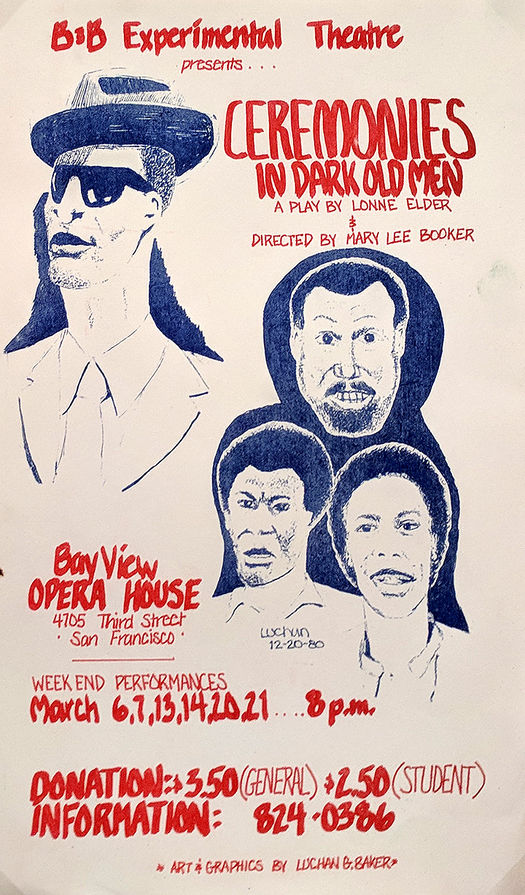 B&B Experimental Theatre
presents . . .
CEREMONIES
IN DARK OLD MEN
A PLAY BY LONNE ELDER
&
DIRECTED BY MARY LEE BOOKER
Luchan
12-20-80
Bay View
OPERA HOUSE
4705 Third Street
· San Francisco ·
WEEKEND PERFORMANCES
March 6,7,13,14,20,21 .... 8 p.m.
DONATION: $3.50 (GENERAL) $2.50 (STUDENT)
INFORMATION: 824-0386
* ART & GRAPHICS BY LUCHAN G. BAKER *